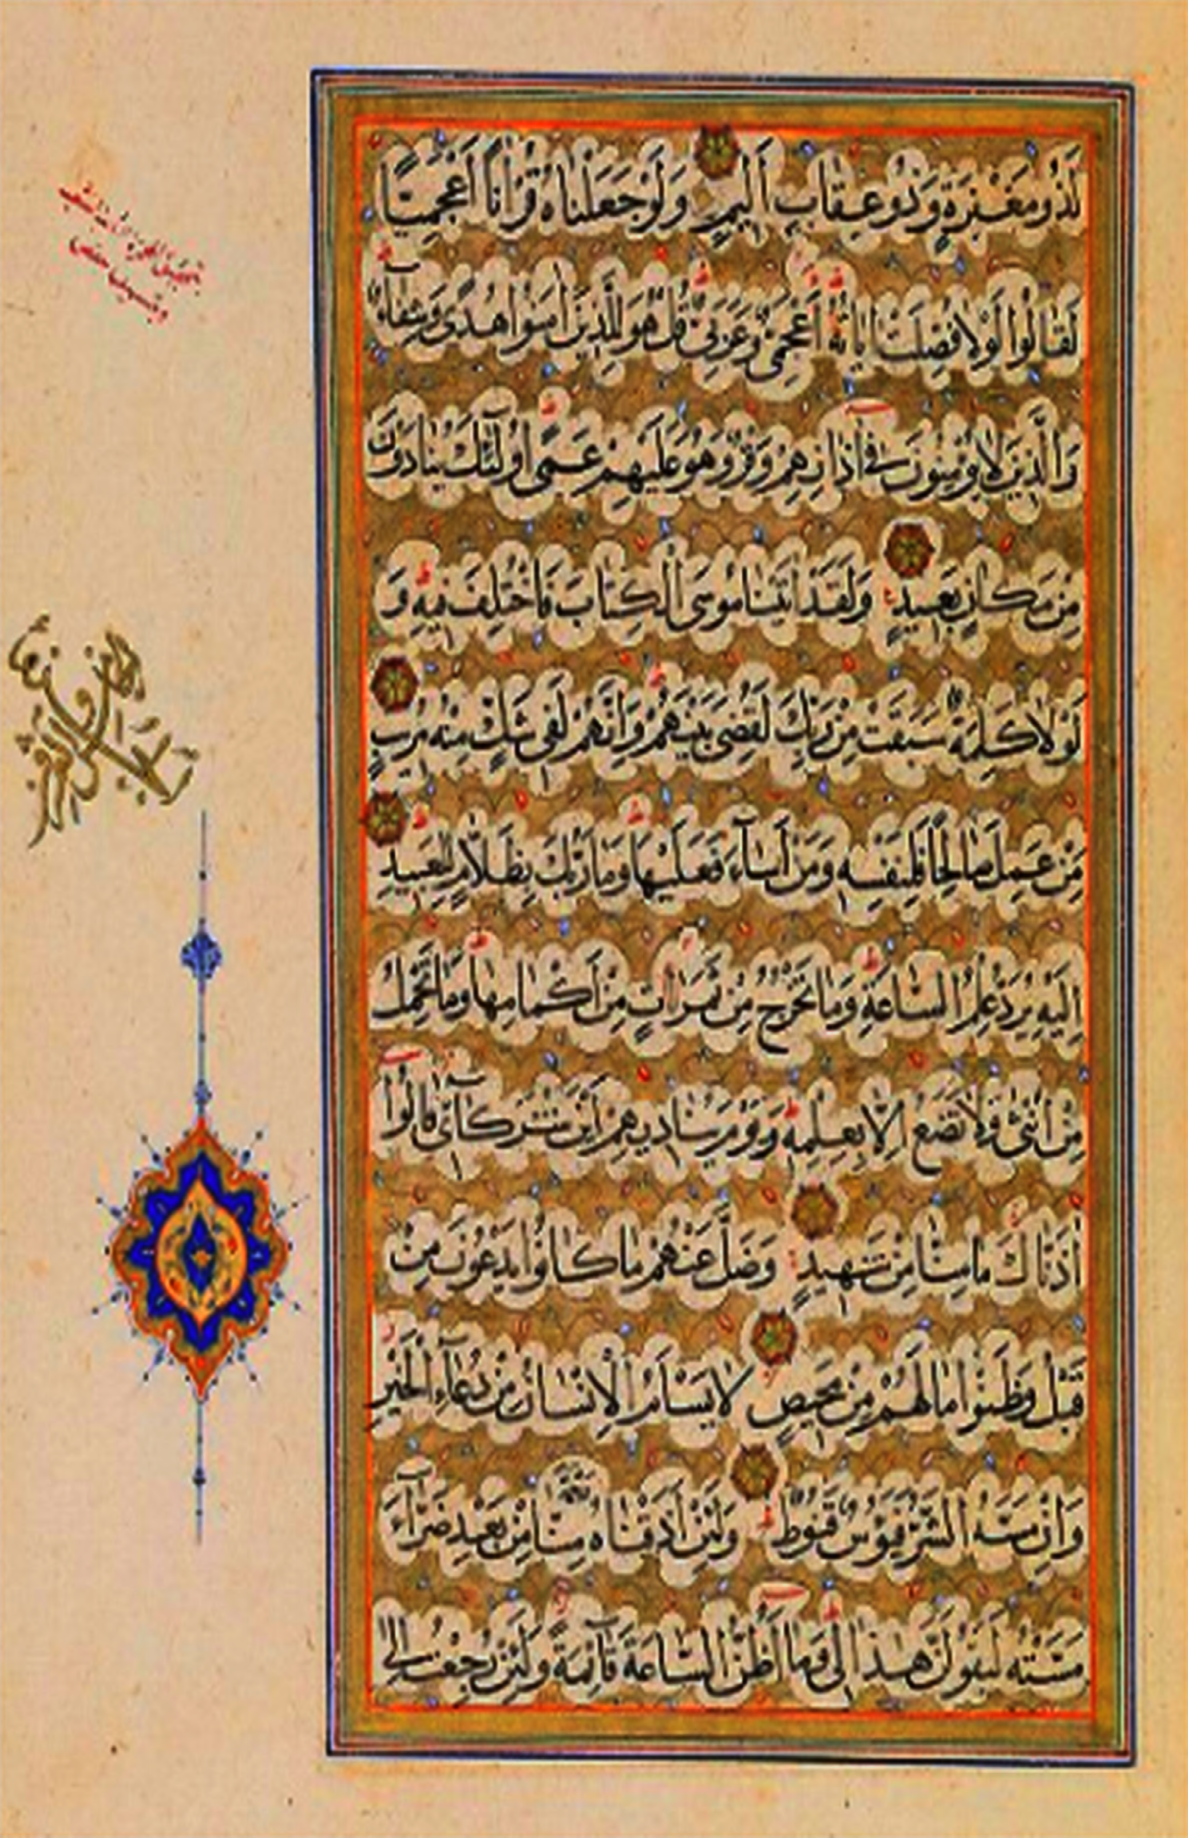 لَذُو مَغْفِرَةٍ وَذُو عِقَابٍ أَلِيمٍ وَلَوْ جَعَلْنَاهُ قُرْآنًا أَعْجَمِيًّا
لَقَالُوا لَوْلَا فُصِّلَتْ آيَاتُهُ أَعْجَمِيٌّ وَعَرَبِيٌّ قُلْ هُوَ لِلَّذِينَ آمَنُوا هُدًى وَشِفَاءٌ
وَالَّذِينَ لَا يُؤْمِنُونَ فِي آذَانِهِمْ وَقْرٌ وَهُوَ عَلَيْهِمْ عَمًى أُولَئِكَ يُنَادَوْنَ
مِنْ مَكَانٍ بَعِيدٍ وَلَقَدْ آتَيْنَا مُوسَى الْكِتَابَ فَاخْتُلِفَ فِيهِ وَ
لَوْلَا كَلِمَةٌ سَبَقَتْ مِنْ رَبِّكَ لَقُضِيَ بَيْنَهُمْ وَإِنَّهُمْ لَفِي شَكٍّ مِنْهُ مُرِيبٍ
مَنْ عَمِلَ صَالِحًا فَلِنَفْسِهِ وَمَنْ أَسَاءَ فَعَلَيْهَا وَمَا رَبُّكَ بِظَلَّامٍ لِلْعَبِيدِ
إِلَيْهِ يُرَدُّ عِلْمُ السَّاعَةِ وَمَا تَخْرُجُ مِنْ ثَمَرَاتٍ مِنْ أَكْمَامِهَا وَمَا تَحْمِلُ
مِنْ أُنْثَى وَلَا تَضَعُ إِلَّا بِعِلْمِهِ وَيَوْمَ يُنَادِيهِمْ أَيْنَ شُرَكَائِي قَالُوا
آذَنَّاكَ مَا مِنَّا مِنْ شَهِيدٍ وَضَلَّ عَنْهُمْ مَا كَانُوا يَدْعُونَ مِنْ
قَبْلُ وَظَنُّوا مَا لَهُمْ مِنْ مَحِيصٍ لَا يَسْأَمُ الْإِنْسَانُ مِنْ دُعَاءِ الْخَيْرِ
وَإِنْ مَسَّهُ الشَّرُّ فَيَئُوسٌ قَنُوطٌ وَلَئِنْ أَذَقْنَاهُ مِنَّا مِنْ بَعْدِ ضَرَّاءَ
مَسَّتْهُ لَيَقُولَنَّ هَذَا لِي وَمَا أَظُنُّ السَّاعَةَ قَائِمَةً وَلَئِنْ رُجِعْتُ إِلَى